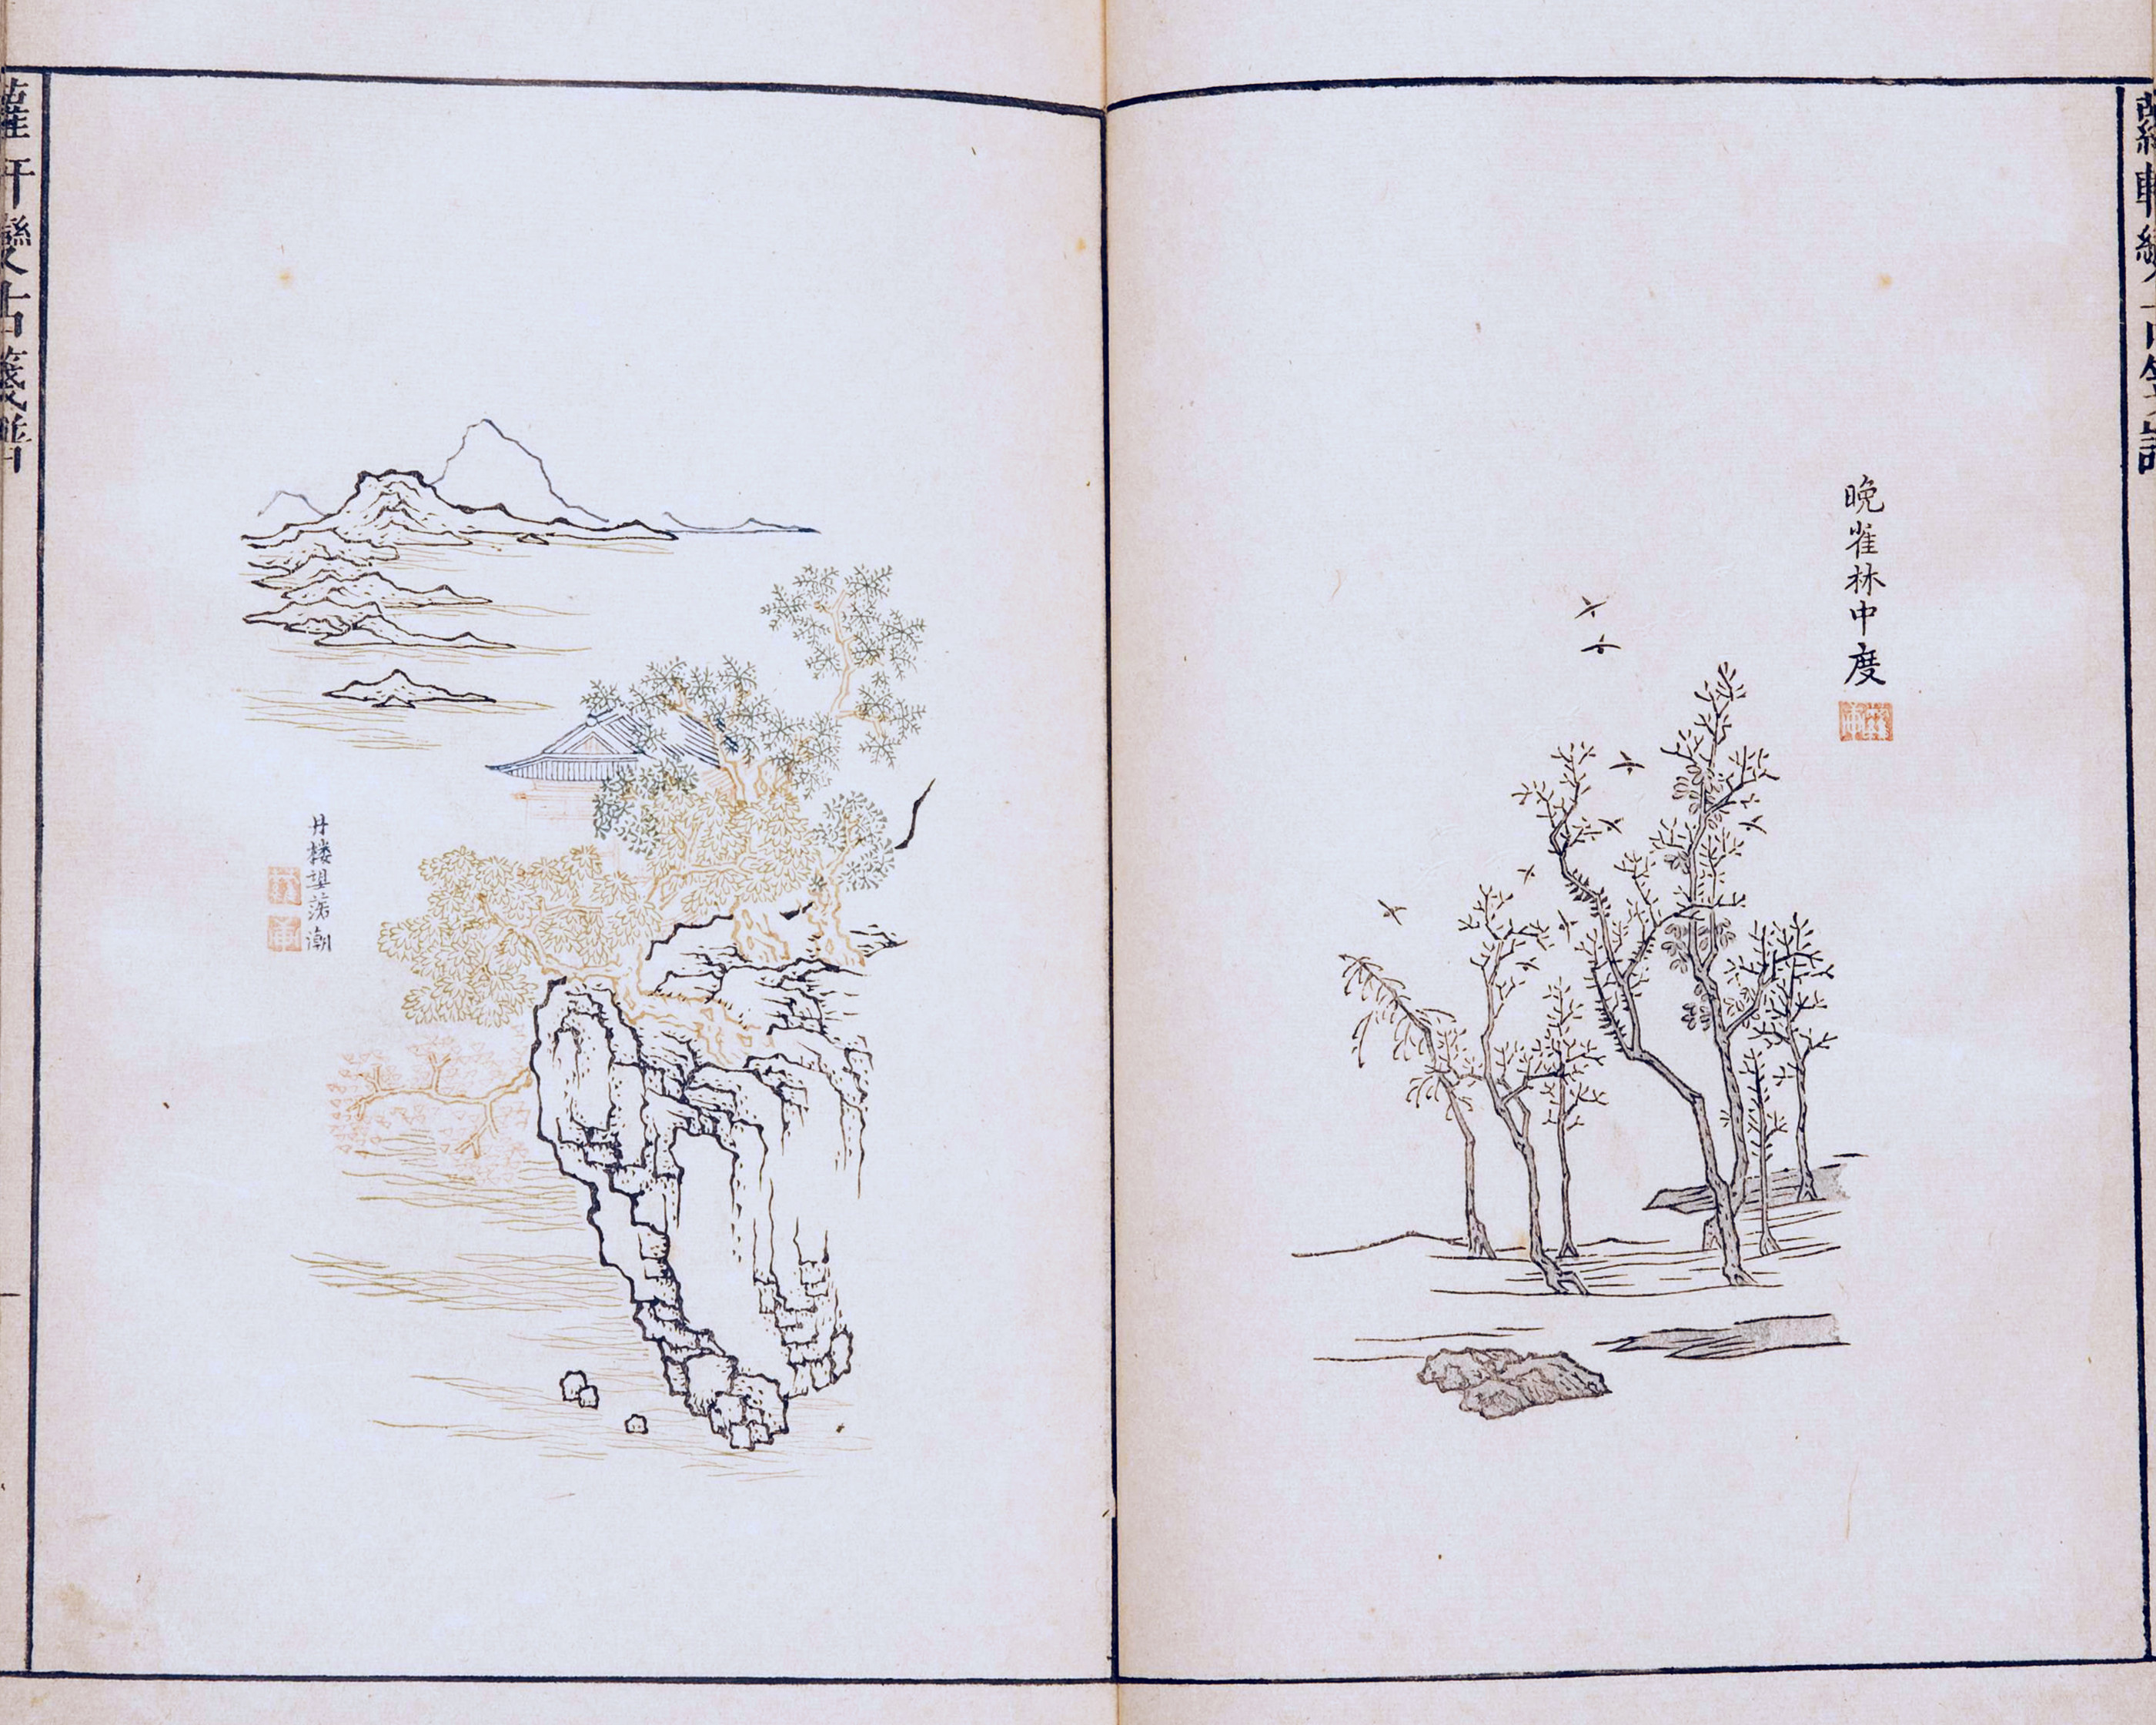 晚雀林中度
丹楼望落潮
蘿軒變古箋譜
蘿軒變古箋譜